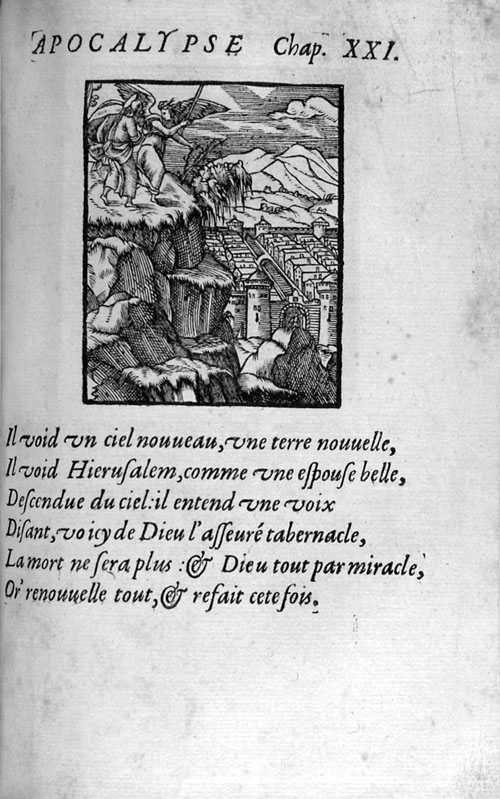 APOCALYPSE Chap. XXI.
Il void vn ciel nouueau, vne terre nouuelle,
Il void Hierusalem, comme vne espouse belle,
Descendue du ciel: il entend vne voix
Disant, voicy de Dieu l'asseuré tabernacle,
La mort ne sera plus : & Dieu tout par miracle,
Or' renouuelle tout, & refait cete fois.